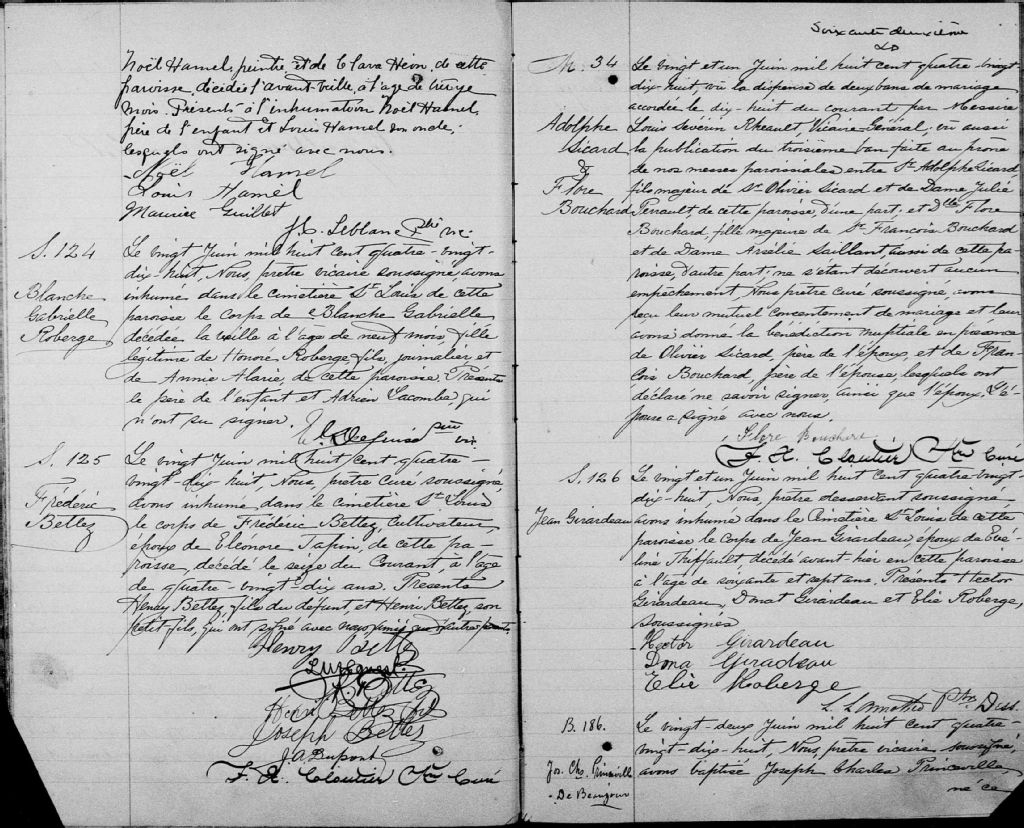 Noël Hamel, peintre et de Clara Héon, de cette
paroisse, décédé l'avant-veille, à l'age de treize
mois. Présents à l'inhumation Noël Hamel
père de l'enfant et Louis Hamel son oncle,
lesquels ont signé avec nous.
Noël Hamel
Louis Hamel
Maurice Guillet
J. C. Leblanc Ptre vic
S. 124
Blanche
Gabrielle
Roberge
Le vingt Juin mil huit cent quatre-vingt-
dix-huit, Nous, prêtre vicaire soussigné, avons
inhumé dans le cimetière St Louis de cette
paroisse le corps de Blanche Gabrielle
décédée la veille à l'âge de neuf mois, fille
légitime de Honoré Roberge fils, journalier et
de Annie Alarie, de cette paroisse. Présents
le père de l'enfant et Adrien Lacombe, qui
n'ont su signer.
ptre vic.
S. 125
Fréderic
Bettez
Le vingt Juin mil huit cent quatre-
vingt-dix-huit, Nous, prêtre curé soussigné,
avons inhumé dans le cimetière St Louis
le corps de Fréderic Bettez Cultivateur,
époux de Eléonore Papin, de cette pa-
roisse, décédé le seize du Courant, à l'age
de quatre-vingt-dix ans. Présents
Henry Bettez, fils du défunt, et Henri Bettez son
petit fils, qui ont signé avec nous ainsi que d'autre parents.
Henry Bettez
Bettez
Henri Bettez fils
Joseph Bettez
J A Dupont
F. X. Cloutier Ptre Curé
Soixante deuxième
M. 34
Adolphe
Sicard
&
Flore
Bouchard
Le vingt et un Juin mil huit cent quatre-vingt
dix-huit, vu la dispense de deux bans de mariage
accordée le dix-huit du courant par Messire
Louis Sévérin Rheault, Vicaire-Général; vu aussi
la publication du troisième ban faite au prone
de nos messes paroissiales entre Sr Adolphe Sicard,
fils majeur de Sr Olivier Sicard et de Dame Julie
Perrault, de cette paroisse d'une part; et Dlle Flore
Bouchard, fille majeure de Sr François Bouchard
et de Dame Arsélie Saillant, aussi de cette pa-
roisse, d'autre part; ne s'étant découvert aucun
empêchement, Nous prêtre curé soussigné, avons
reçu leur mutuel Consentement de mariage et leur
avons donné la bénédiction nuptiale en présence
de Olivier Sicard, père de l'époux, et de Fran-
çois Bouchard, père de l'épouse, lesquels ont
déclaré ne savoir signer ainsi que l'époux. L'é-
pouse a signé avec nous.
Flore Bouchard
F. X. Cloutier Ptre Curé
S. 126
Jean Girardeau
Le vingt et un Juin mil huit cent quatre-vingt-
dix-huit Nous, prêtre desservant soussigné
avons inhumé dans le Cimetière St Louis de cette
paroisse le corps de Jean Girardeau, époux de Eve-
line Thiffault, décédé avant hier en cette paroisse
à l'age de soixante et sept ans. Présents Hector
Girardeau, Donat Girardeau et Elie Roberge,
soussignés
Hector Girardeau
Dona Giradeau
Elie Roberge
L. Lamothe Ptre Dess.
B. 186.
Jos. Chs. Princeville
De Beaujour
Le vingt-deux Juin mil huit cent quatre-
vingt-dix-huit, Nous, prêtre vicaire soussigné,
avons baptisé Joseph Charles Princeville,
né ce